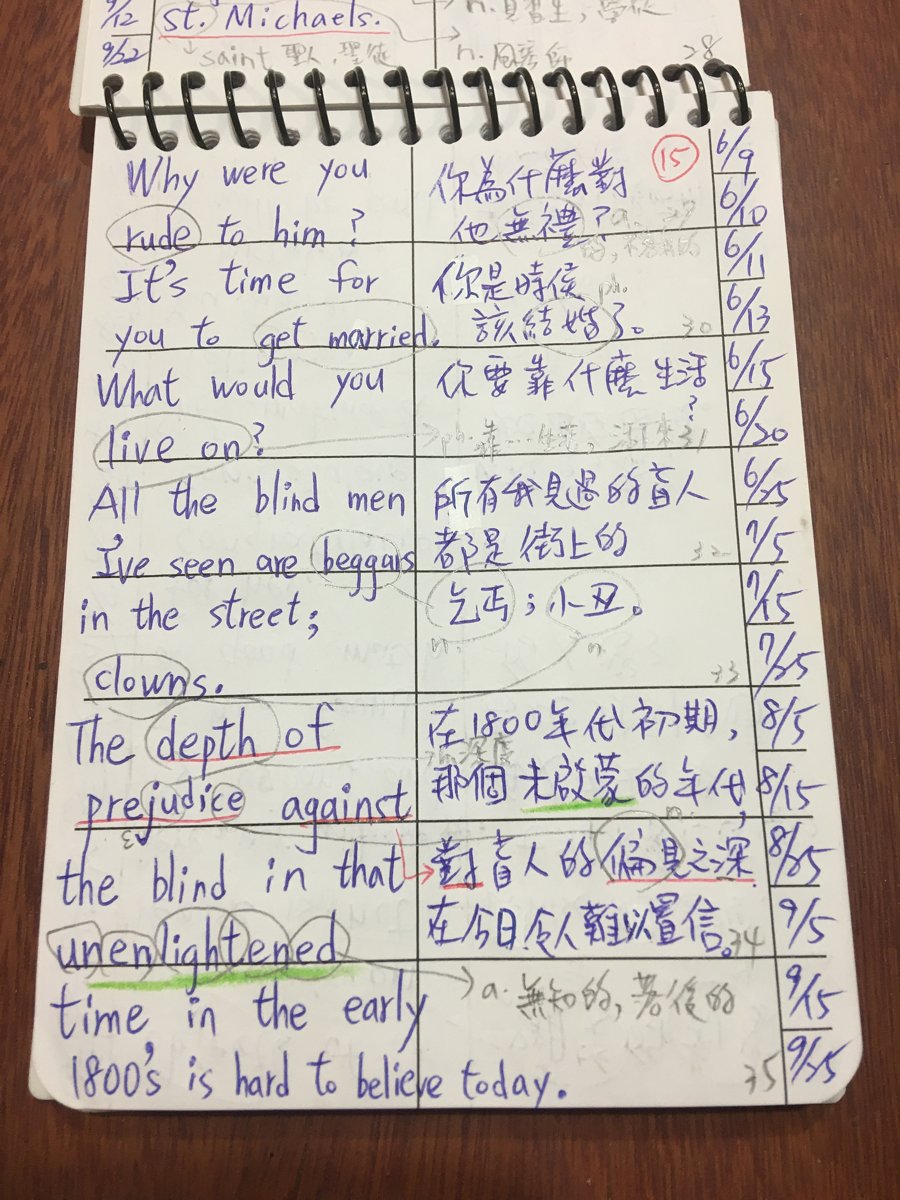 9/12
st. Michaels.
9/22
saint 聖人, 聖徒
n.
28
15
Why were you
rude to him?
It's time for
you to get married.
What would you
live on?
All the blind men
I've seen are beggars
in the street;
clowns.
The depth of
prejudice against
3
the blind in that
unenlightened
time in the early
1800's is hard to believe today.
你為什麼對
他無禮?
a. 29
你是時侯
ph.
該結婚了。
30
你要靠什麼生活
?
ph. 靠…生活,
31
所有我見過的盲人
都是街上的
32
乞丐;小丑。
n.
n.
33
在1800年代初期,
深度
那個未啟蒙的年代,
n.
對盲人的偏見之深
在今日令人難以置信。
34
a. 無知的, 落後的
35
6/9
6/10
6/11
6/13
6/15
6/20
6/25
7/5
7/15
7/25
8/5
8/15
8/25
9/5
9/15
9/25